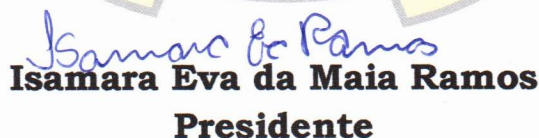 Isamara E. Ramos
Isamara Eva da Maia Ramos
Presidente